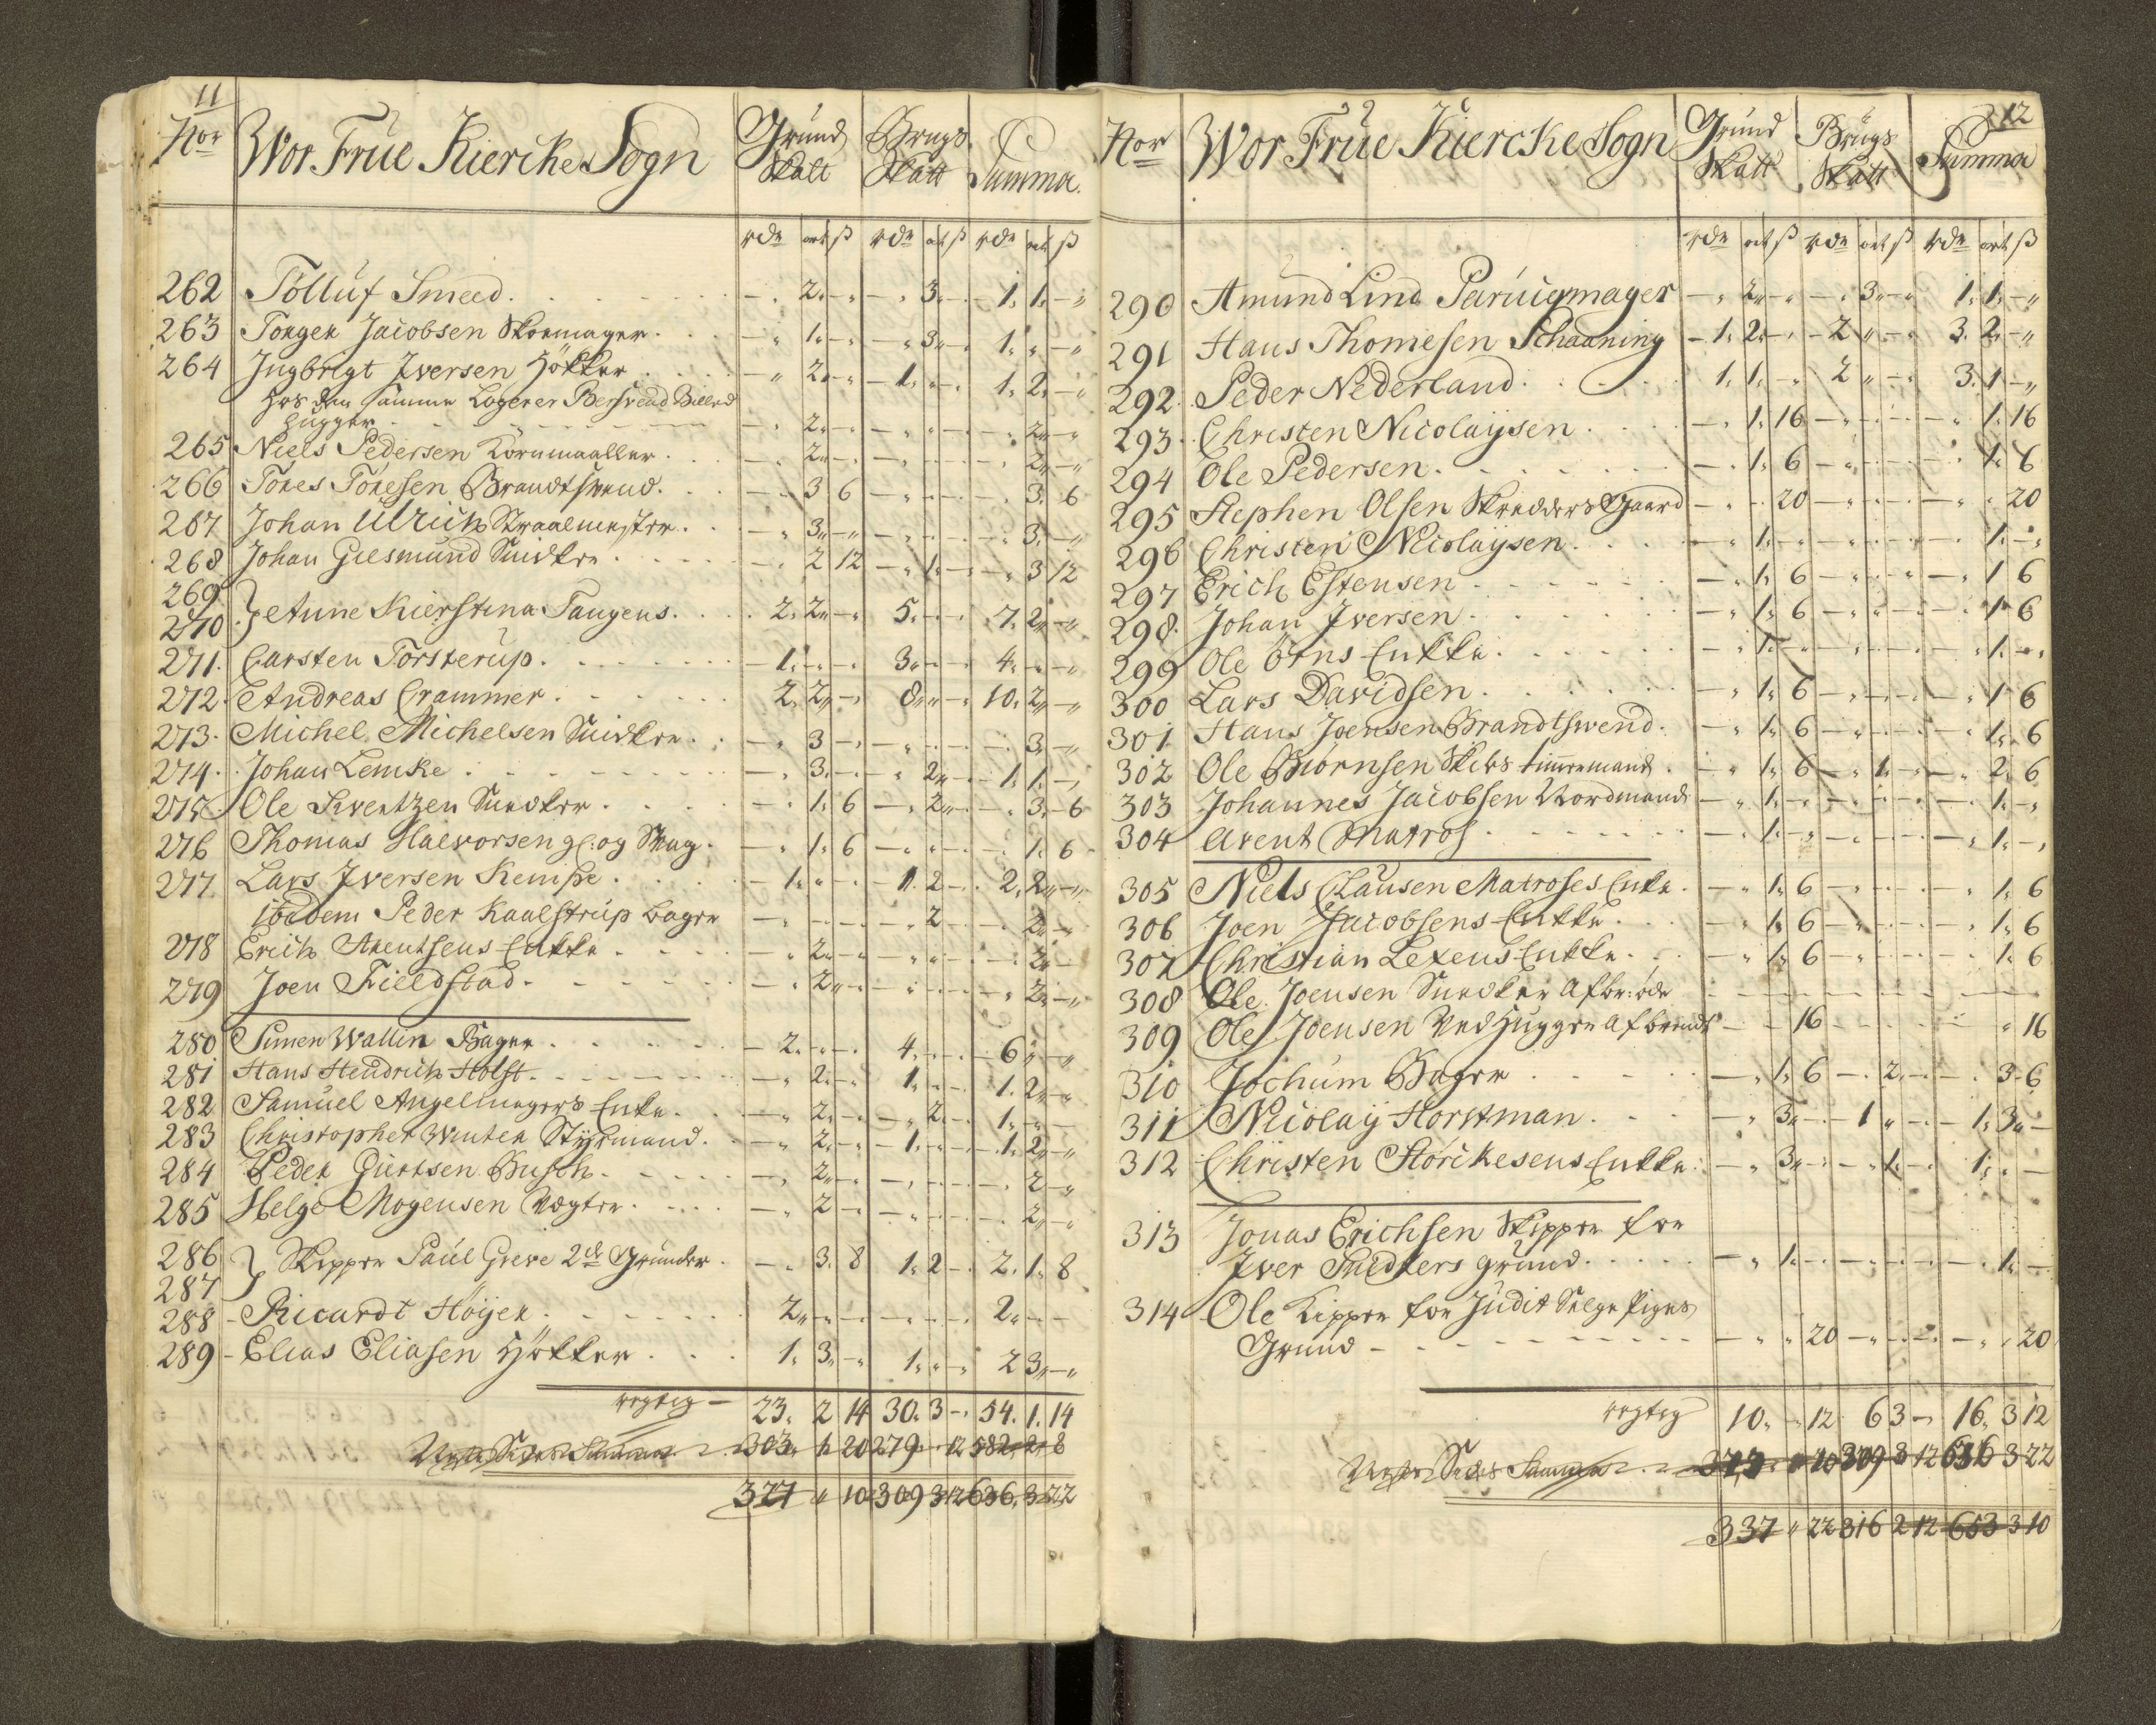 11
Nor Wor Früe Kiercke Sogn Grund Skatt Brugs Skatt Summa.
rdr ort ß rdr ort ß rdr ort ß
262 Tölluf Smeed. - „ 2. - „ - „ 3. - 1. 1. - „
263 Torger Jacobsen Skoemager. - „ 1. - „ - „ 3. - 1. „ - „
264 Ingbrigt Iversen Hökker - „ 2. - „ - 1. „ - 1. 2. - „
hos den samme Logerer Bersvend Billed
hugger - „ 2. - „ - „ „ - „ 2. - „
265 Niels Pedersen Kornmaaller. - „ 2. - „ - „ „ - „ 2. - „
266 Tönes Tönesen Brandtsvend. - „ 3 6 - „ „ - „ 3. 6
267 Johan Ulrich Straalmester. - „ 3. - „ - „ „ - „ 3. - „
268 Johan Giesmund Snidker - „ 2 12 - „ 1. - „ 3 12
269
270 } Anne Kierstina Tangens. 2. 2. - „ 5. - - 7. 2. - „
271. Carsten Torsterup. - 1. - „ 3. - - 4. „ - „
272. Andreas Crammer. 2. 2. - „ 8. „ - „ 10. 2. - „
273. Michel Michelsen Snidker. - „ 3 - „ - „ - „ 3. - „
274. Johan Lemke - „ 3. - „ „ 2. - 1. 1. - „
275. Ole Swentzen Snedker. - „ 1. 6 - „ 2. - „ 3. - 6
276 Thomas Halvorsen gl: og Skag. - „ 1. 6 - „ „ - „ 1. 6
277. Lars Iversen Kempe - 1. „ - - 1. 2 - 2. 2. - „
ibidem Peder Kaalstrup bager - „ - - - „ 2 - 2. - „
278 Erich Arentsens Enkke - „ 2. - „ - „ „ - „ 2. -
279 Joen Fieldstad. - „ 2. - „ - „ „ - „ 2. - „
280 Simen Wallin Bager. - 2. - „ 4. - - 6 „ - „
281 Hans Hendrich Holst. - „ 2. - „ 1. - - 1. 2. - „
282 Samuel Angelmagers Enke. - „ 2. - „ - „ 2. - 1. „ -
283 Christopher Winter Styrmand. - „ 2. - „ 1. - - 1. 2. - „
284 Peder Giertsen Busch. - „ 2. - „ - „ - „ 2 - „
285 Helge Mogensen Vægter. - „ 2 - - „ - „ 2. - „
286
287 } Skipper Paul Greve 2de Grunder. - „ 3. 8 1. 2 - 2. 1. 8
288 - Ricardt Höyer. 2. „ - - „ - - 2. - -
289 - Elias Eliasen Hökker 1. 3. - „ 1. „ - „ 2 3. - „
rigtig - 23. 2 14 30. 3 - 54. 1. 14
303. 1. 20 279. „ 12 582. 2. 8
327 „ 10 309 3 12 636. 3 22
12
Nor Wor Früe Kiercke Sogn Grund Skatt Brugs Skatt Summa
rdr ort ß rdr ort ß rdr ort ß
290 Amund Lind Paruigmager - „ 2. - „ - „ 3. - „ 1. 1. - „
291 Hans Thomesen Schaaning - 1. 2. - „ - 2 „ - „ 3. 2. - „
292. Peder Nederland. 1. 1. - „ 2 „ - „ 3. 1 - „
293. Christen Nicolaysen - „ 1. 16 - „ - - „ 1. 16
294 Ole Pedersen. - „ 1. 6 - „ - - „ 1. 6
295 Stephen Olsen Skredders Gaard - „ - 20 - „ - - „ „ 20
296 Christen Nicolaysen. - „ 1. - „ - - - 1. - „
297 Erich Estensen - „ 1. 6 - „ - - „ 1 6
298. Johan Iversen - „ 1. 6 - „ - - „ 1. 6
299 Ole Örns Enkke. - „ 1. - „ - - - 1. - „
300 Lars Davidsen - „ 1. 6 - „ - - „ 1 6
301. Hans Joensen Brandtsvend. - „ 1. 6 - „ - - „ 1. 6
302 Ole Biörnsen Skibs timmermand. - „ 1. 6 - „ 1. - - „ 2. 6
303 Johannes Jacobsen Nordmand - „ 1. - „ - - - 1. - „
304 Arent Matros - „ 1. - „ - - - 1. - „
305 Niels Clausen Matroses Enke. - „ 1. 6 - „ - - „ 1. 6
306 Joen Jacobsens Enkke. - „ 1. 6 - „ - - „ 1. 6
307 Christian Lexens Enkke. - „ 1. 6 - „ - - „ 1. 6
308 Ole Joensen Snedker Afbr: öde
309 Ole Joensen Vedhugger Afbrendt - - 16 - - - „ 16
310 Jochum Bager - „ 1. 6 - „ 2. - - „ 3 - 6
311 Nicolay Horstman. - „ 3. - 1 „ - - 1. 3. -
312 Christen Störckesens Enkke. - „ 3. - - „ 1. - 1. „ -
313 Jonas Erichsen Skipper for
Iver Snedkers grund. - „ 1. - - „ - - „ 1. -
314 Ole Kipper for Judit Selge Piges
Grund - - „ „ 20 - „ - - „ „ 20
rigtig 10. „ 12. 6 3 - 16. 3 12
309 3 12 636 3 22
337 „ 22 316 2 12 653 3 10